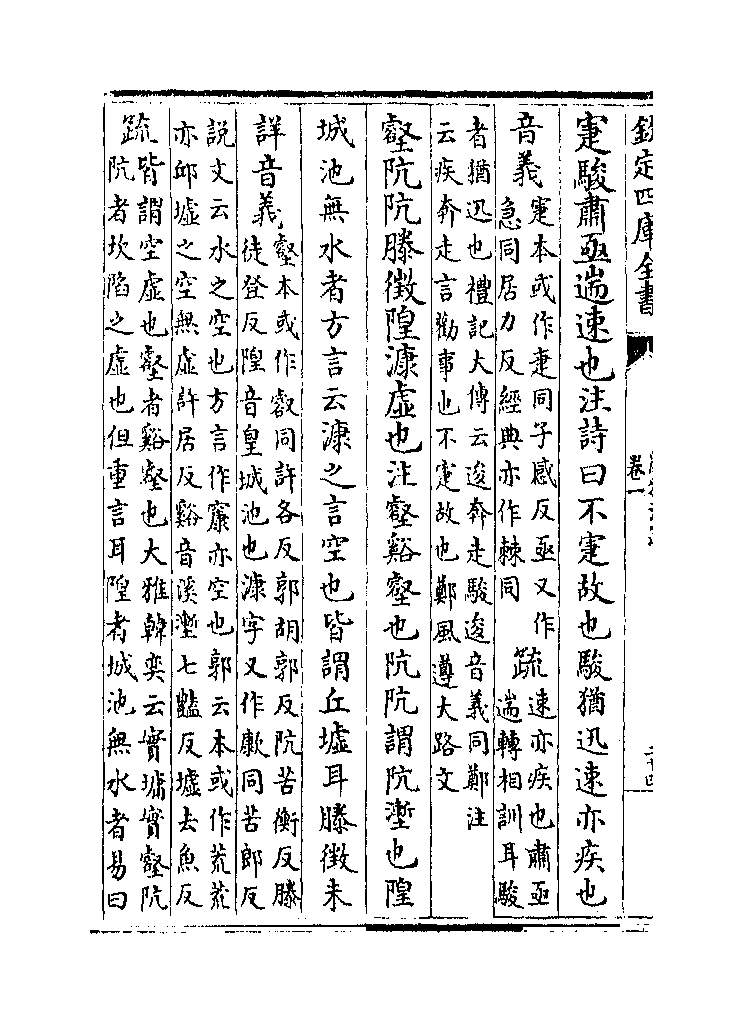 欽定四庫全書
卷一
寁駿肅亟遄速也注詩曰不寁故也駿猶迅速亦疾也
音義
寁本或作疌同子感反亟又作
急同居力反經典亦作棘同
疏
速亦疾也肅亟
遄轉相訓耳駿
者猶迅也禮記大傳云逡奔走駿逡音義同鄭注
云疾奔走言勸事也不寁故也鄭風遵大路文
壑阬阬滕徵隍漮虛也注壑谿壑也阬阬謂阬壍也隍
城池無水者方言云漮之言空也皆謂丘墟耳滕徵未
詳音義
壑本或作叡同許各反郭胡郭反阬苦衡反滕
徒登反隍音皇城池也漮字又作歑同苦郎反
説文云水之空也方言作䆲亦空也郭云本或作荒荒
亦邱墟之空無虛許居反谿音溪壍七豔反墟去魚反
疏
皆謂空虛也壑者谿壑也大雅韓奕云實墉實壑阬
阬者坎陷之虛也但重言耳隍者城池無水者易曰